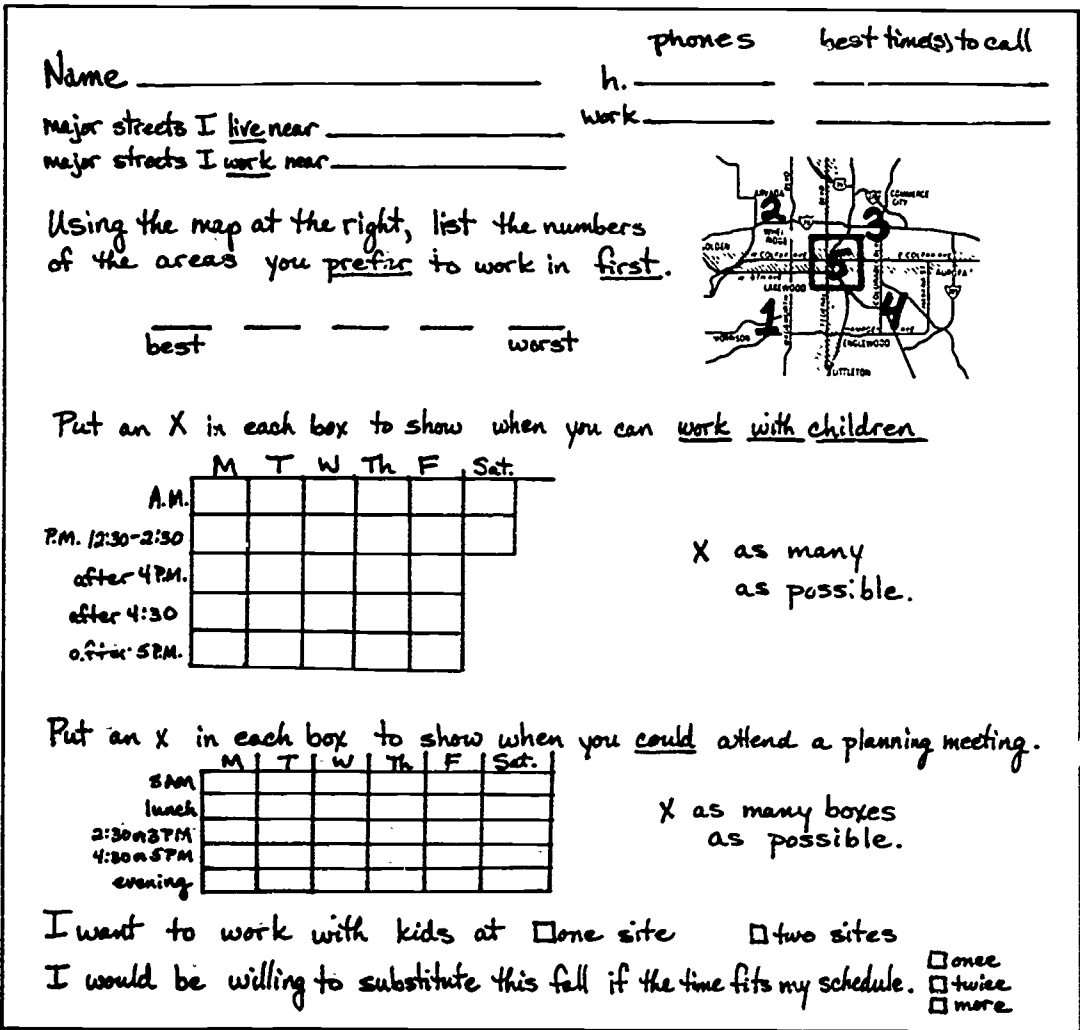 phones best time(s) to call
Name h.
major streets I live near work
major streets I work near
Using the map at the right, list the numbers
of the areas you prefer to work in first.
best worst
ARVADA
COMMERCE
CITY
2 3
WHEAT
RIDGE
5
LAKEWOOD
AURORA
1 4
ENGLEWOOD
LITTLETON
Put an X in each box to show when you can work with children
M T W Th F Sat.
A.M.
P.M. 12:30-2:30
after 4 P.M.
after 4:30
after 5 P.M.
X as many
as possible.
Put an X in each box to show when you could attend a planning meeting.
M T W Th F Sat.
8 AM
lunch
2:30 or 3 PM
4:30 or 5 PM
evening
X as many boxes
as possible.
I want to work with kids at one site two sites
I would be willing to substitute this fall if the time fits my schedule. once
twice
more